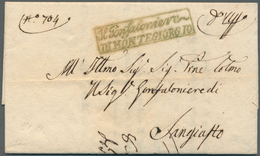 N° 704
d'Uffo
Il Gonfaloniere
DI MONTEGIORGIO
All' Illmo Sig. Sig. Pne Colmo
Il Sig. Gonfaloniere di
Sangiusto